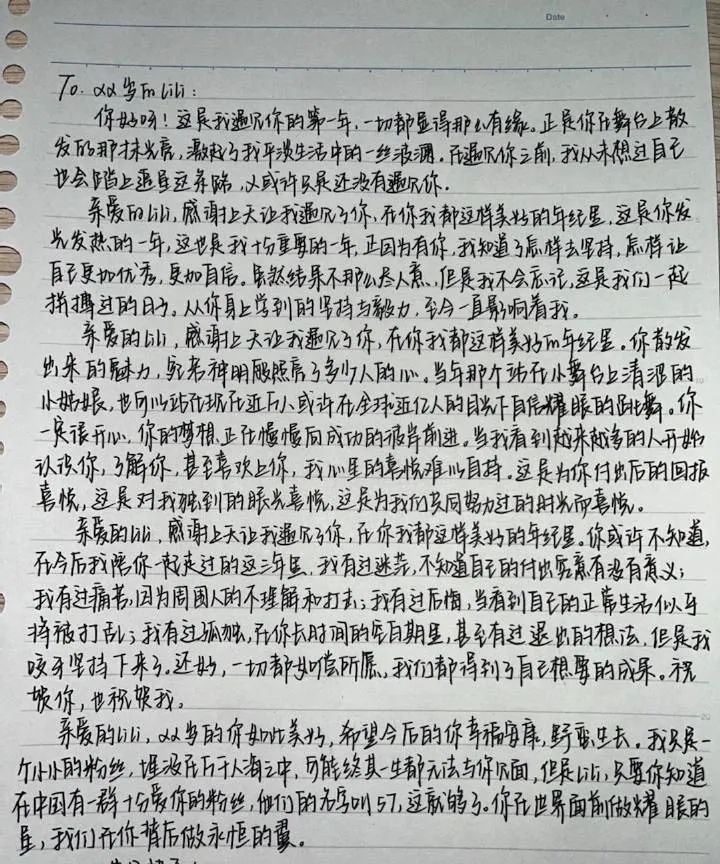 Date
To. αα岁的Lili：
你好呀！这是我遇见你的第一年，一切都显得那么有缘。正是你在舞台上散
发的那抹光亮，激起了我平淡生活中的一丝波澜。在遇见你之前，我从未想过自己
也会踏上追星这条路，又或许只是还没有遇见你。
亲爱的Lili，感谢上天让我遇见了你，在你我都这样美好的年纪里。这是你发
光发热的一年，这也是我十分重要的一年，正因为有你，我知道了怎样去坚持，怎样让
自己更加优秀，更加自信。虽然结果不那么尽人意，但是我不会忘记，这是我们一起
拼搏过的日子。从你身上学到的坚持与毅力，至今一直影响着我。
亲爱的Lili，感谢上天让我遇见了你，在你我都这样美好的年纪里。你散发
出来的魅力，宛若神明般照亮了多少人的心。当年那个站在小舞台上清涩的
小姑娘，也可以站在现在近万人或许在全球近亿人的目光下自信耀眼的跳舞。你
一定很开心，你的梦想正在慢慢向成功的彼岸前进。当我看到越来越多的人开始
认识你，了解你，甚至喜欢上你，我心里的喜悦难以自持。这是为你付出后的回报
喜悦，这是对我独到的眼光喜悦，这是为我们共同努力过的时光而喜悦。
亲爱的Lili，感谢上天让我遇见了你，在你我都这样美好的年纪里。你或许不知道，
在今后我陪你一起走过的这三年里，我有过迷茫，不知道自己的付出究竟有没有意义；
我有过痛苦，因为周围人的不理解和打击；我有过后悔，当看到自己的正常生活似乎
将被打乱；我有过孤独，在你长时间的空白期里，甚至有过退出的想法，但是我
咬牙坚持下来了。还好，一切都如偿所愿，我们都得到了自己想要的成果。祝
贺你，也祝贺我。
亲爱的Lili，αα岁的你如此美好，希望今后的你幸福安康，野蛮生长。我只是一
个小小的粉丝，埋没在万千人海之中，可能终其一生都无法与你见面，但是Lili，只要你知道
在中国有一群十分爱你的粉丝，他们的名字叫57，这就够了。你在世界面前做耀眼的
星，我们在你背后做永恒的翼。